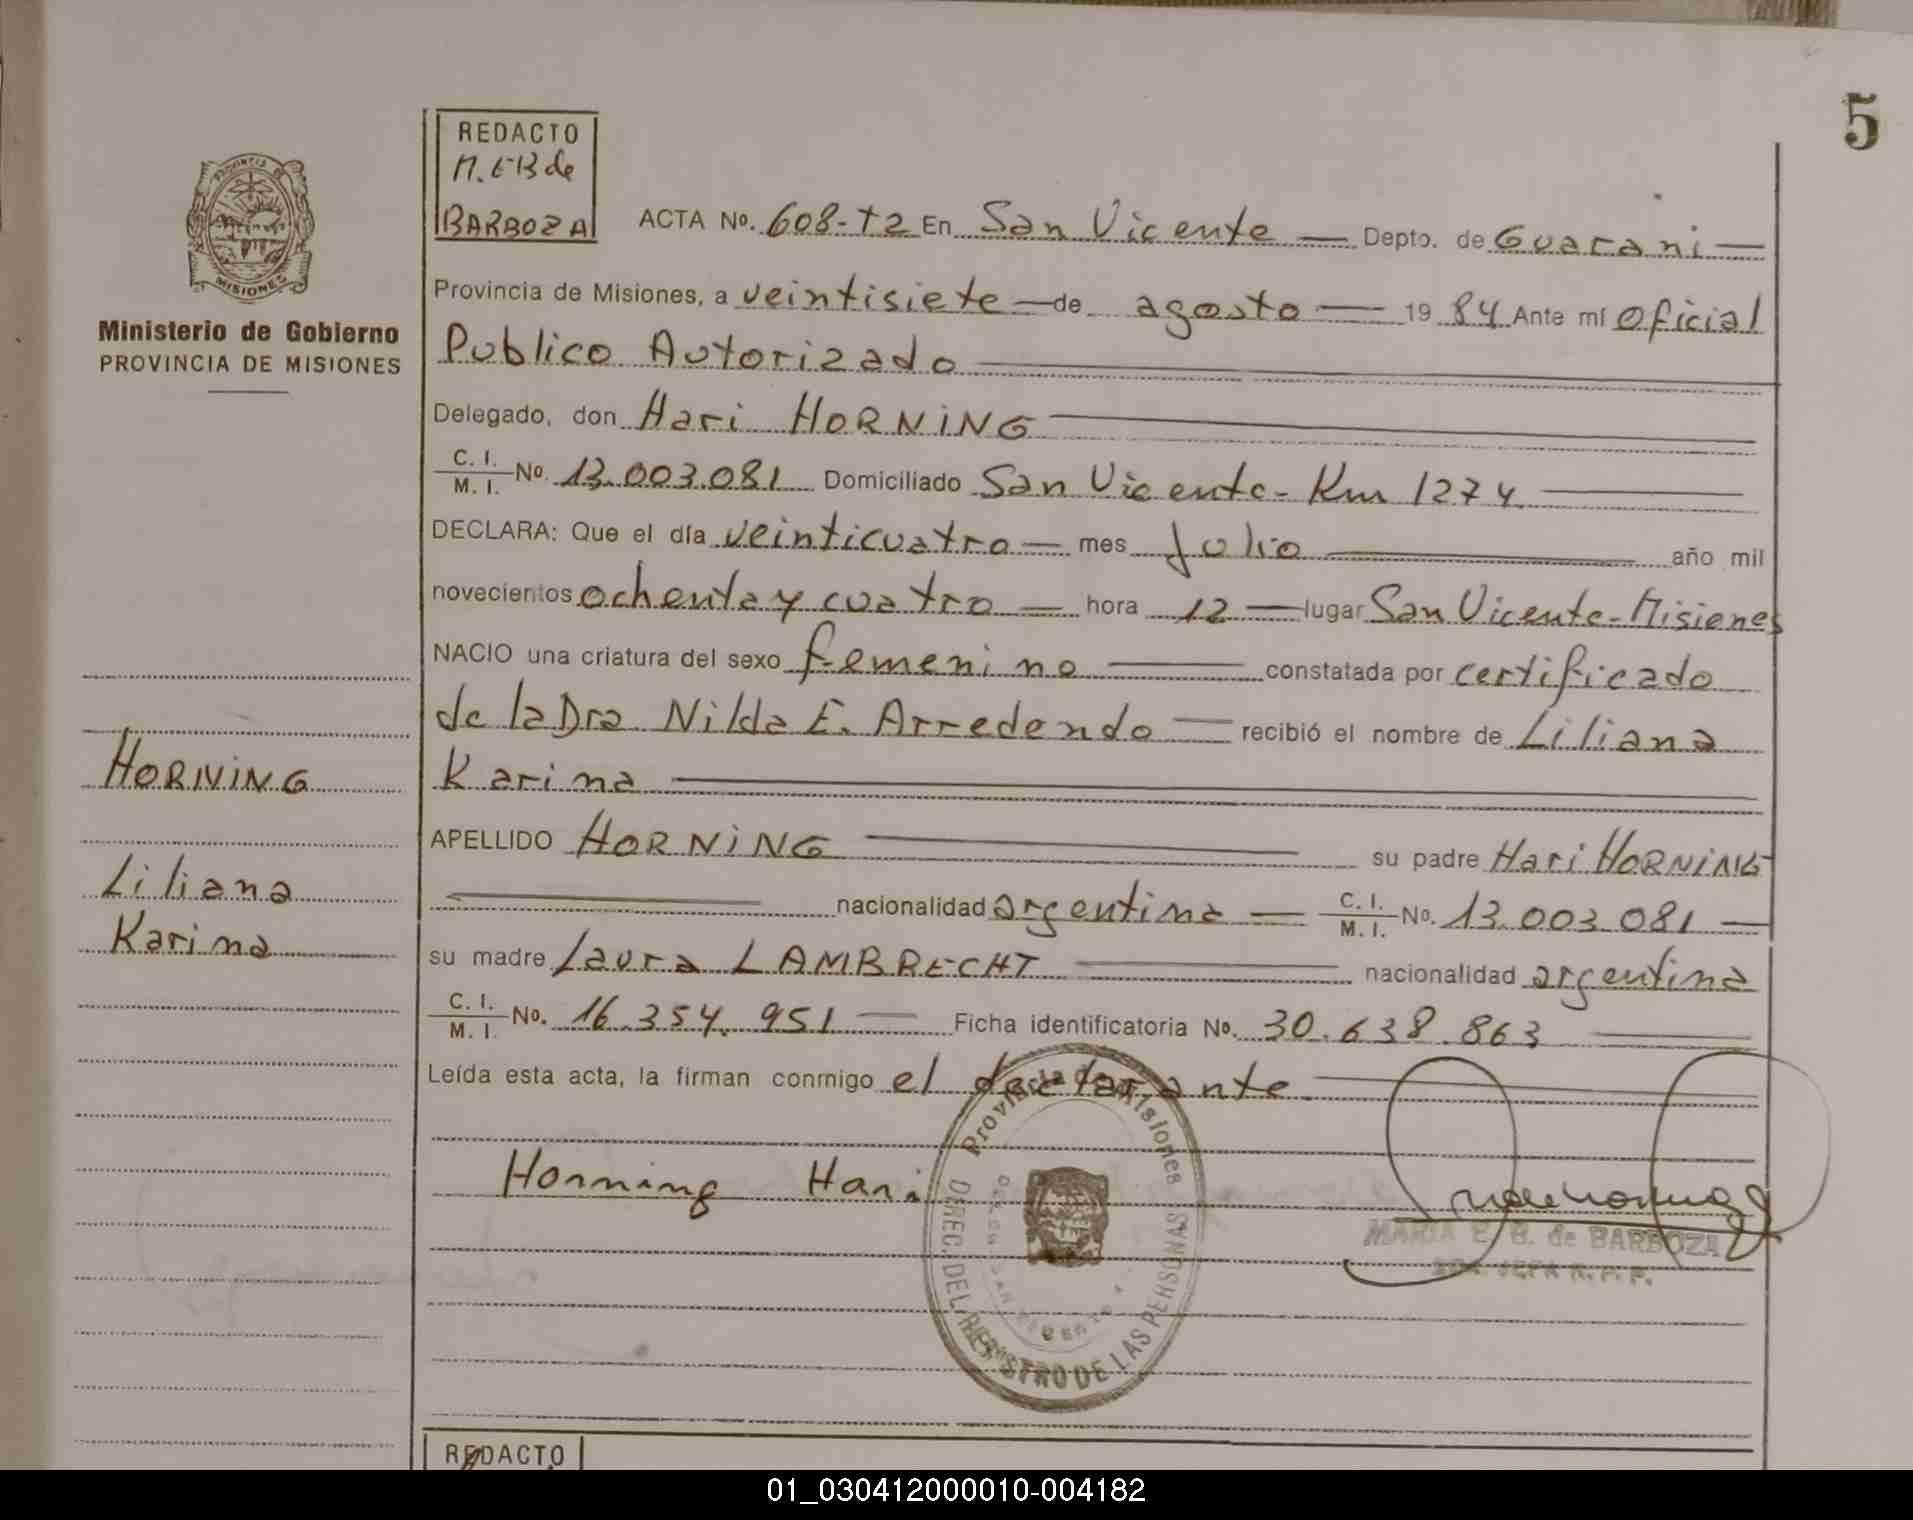 5
REDACTO
M. E B de
BARBOZA
PROVINCIA DE
MISIONES
Ministerio de Gobierno
PROVINCIA DE MISIONES
ACTA Nº. 608-T2 En San Vicente — Depto. de Guarani —
Provincia de Misiones, a veintisiete — de agosto — 19 84 Ante mí Oficial
Publico Autorizado
Delegado, don Hari HORNING
C. I. / M. I. Nº. 13.003.081 Domiciliado San Vicente - Km 1274
DECLARA: Que el día veinticuatro — mes Julio — año mil
novecientos ochenta y cuatro — hora 12 — lugar San Vicente - Misiones
NACIO una criatura del sexo femenino — constatada por certificado
de la Dra Nilda E. Arredondo — recibió el nombre de Liliana
Karina
APELLIDO HORNING — su padre Hari HORNING
— nacionalidad argentina — C. I. / M. I. Nº. 13.003.081 —
su madre Laura LAMBRECHT — nacionalidad argentina
C. I. / M. I. Nº. 16.354.951 — Ficha identificatoria Nº. 30.638.863
Leída esta acta, la firman conmigo el declarante
HORNING
Liliana
Karina
Horning Hari
Provincia de Misiones
DIREC. DEL REGISTRO DE LAS PERSONAS
MARIA E. B. de BARBOZA
REDACTO
01_030412000010-004182